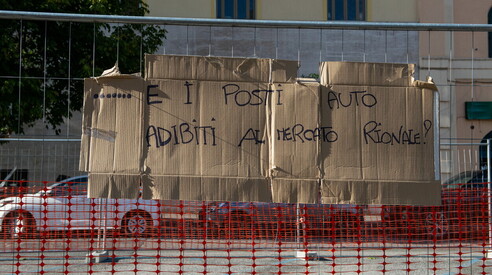 ....... E I POSTI AUTO
ADIBITI AL MERCATO RIONALE?